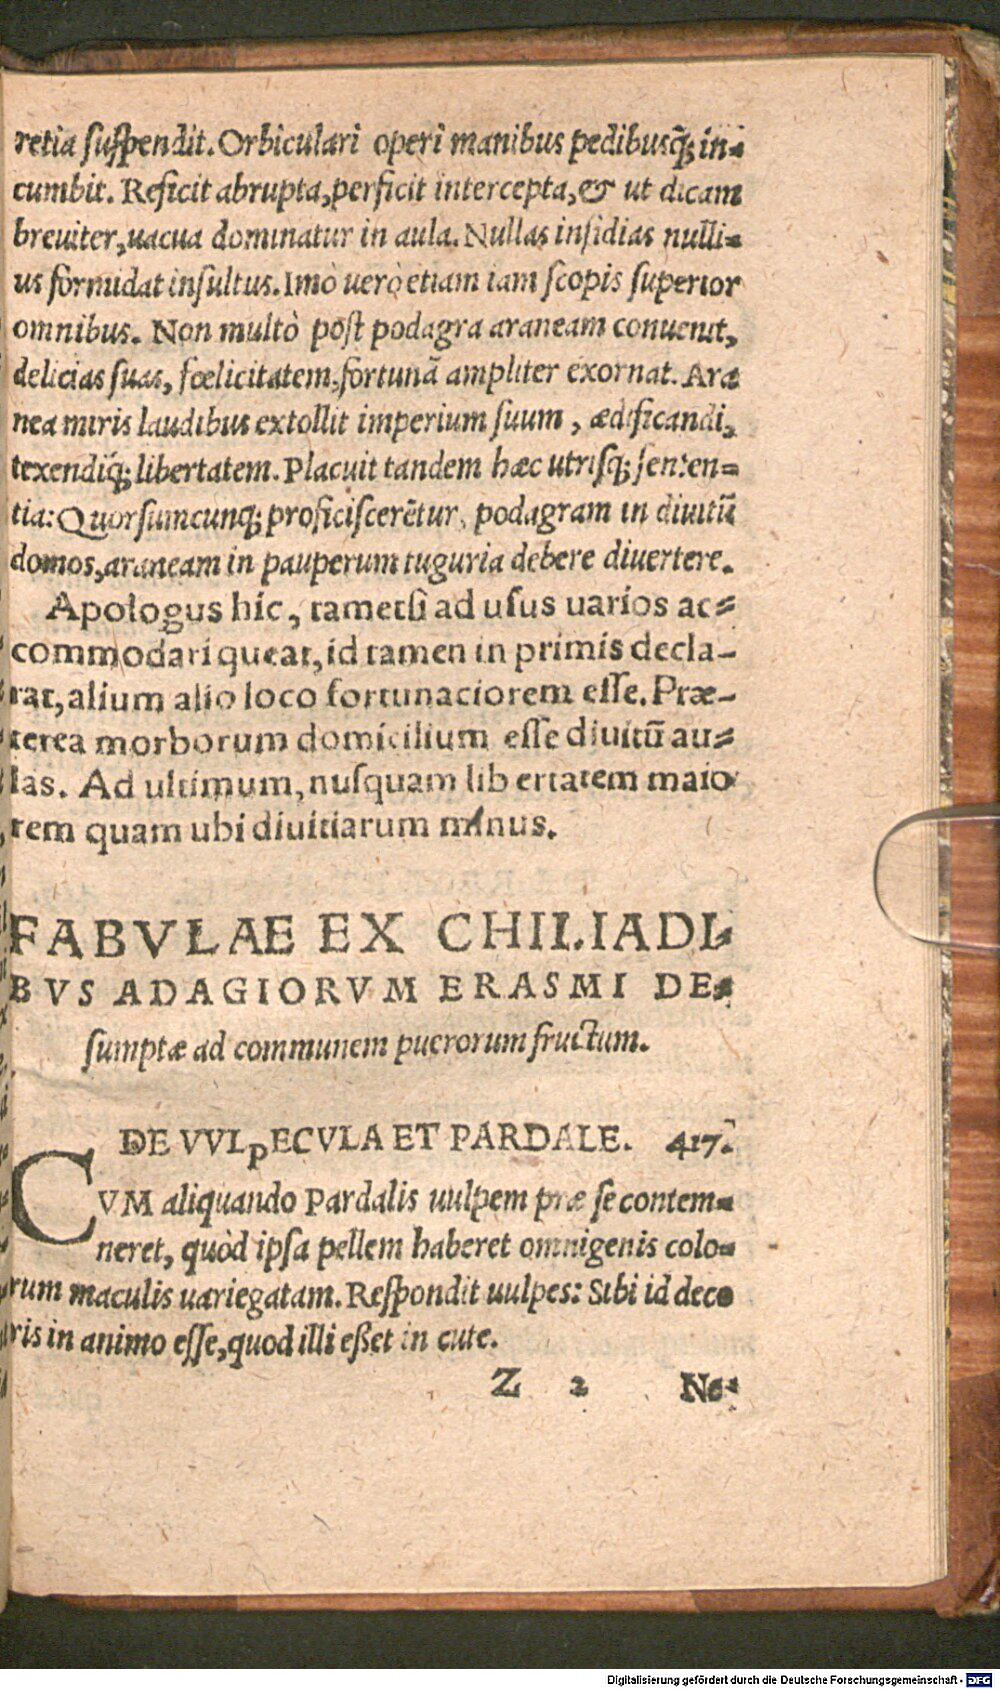 retia suspendit. Orbiculari operi manibus pedibusq́; in-
cumbit. Reficit abrupta, perficit intercepta, & ut dicam
breuiter, uacua dominatur in aula. Nullas insidias nulli-
us formidat insultus. Imò uerò etiam iam scopis superior
omnibus. Non multò pòst podagra araneam conuenit,
delicias suas, fœlicitatem, fortunã ampliter exornat. Ara
nea miris laudibus extollit imperium suum, ædificandi,
texendiq́; libertatem. Placuit tandem hæc utrisq; senten-
tia: Quorsumcunq; proficiscerẽtur, podagram in diuitũ
domos, araneam in pauperum tuguria debere diuertere.
Apologus hic, tametsi ad usus uarios ac-
commodari queat, id tamen in primis decla-
rat, alium alio loco fortunaciorem esse. Præ-
terea morborum domicilium esse diuitũ au-
las. Ad ultimum, nusquam libertatem maio
rem quam ubi diuitiarum minus.
FABVLAE EX CHILIADI-
BVS ADAGIORVM ERASMI DE-
sumptæ ad communem puerorum fructum.
DE VVLpECVLA ET PARDALE. 417.
CVM aliquando Pardalis uulpem præ se contem-
neret, quòd ipsa pellem haberet omnigenis colo-
rum maculis uariegatam. Respondit uulpes: Sibi id deco
ris in animo esse, quod illi eßet in cute.
Z 2 Ne-
Digitalisierung gefördert durch die Deutsche Forschungsgemeinschaft - DFG